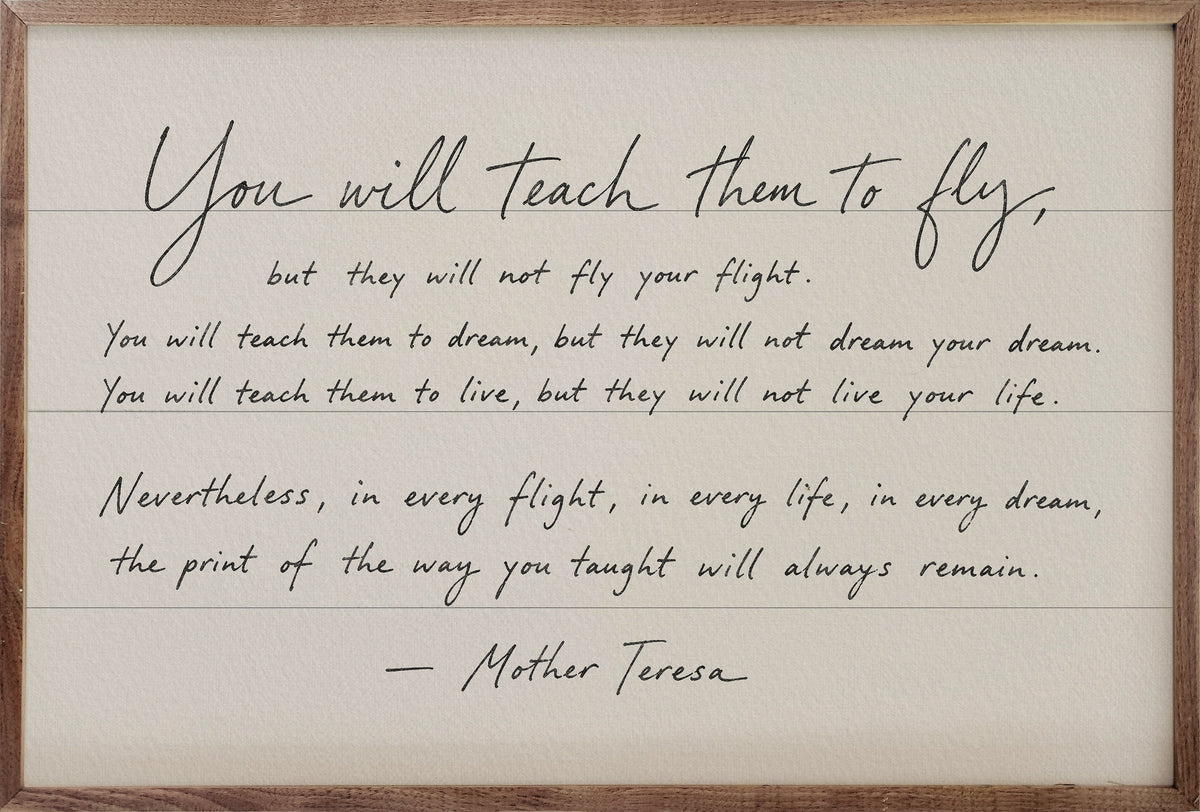 You will teach them to fly,
but they will not fly your flight.
You will teach them to dream, but they will not dream your dream.
You will teach them to live, but they will not live your life.
Nevertheless, in every flight, in every life, in every dream,
the print of the way you taught will always remain.
— Mother Teresa